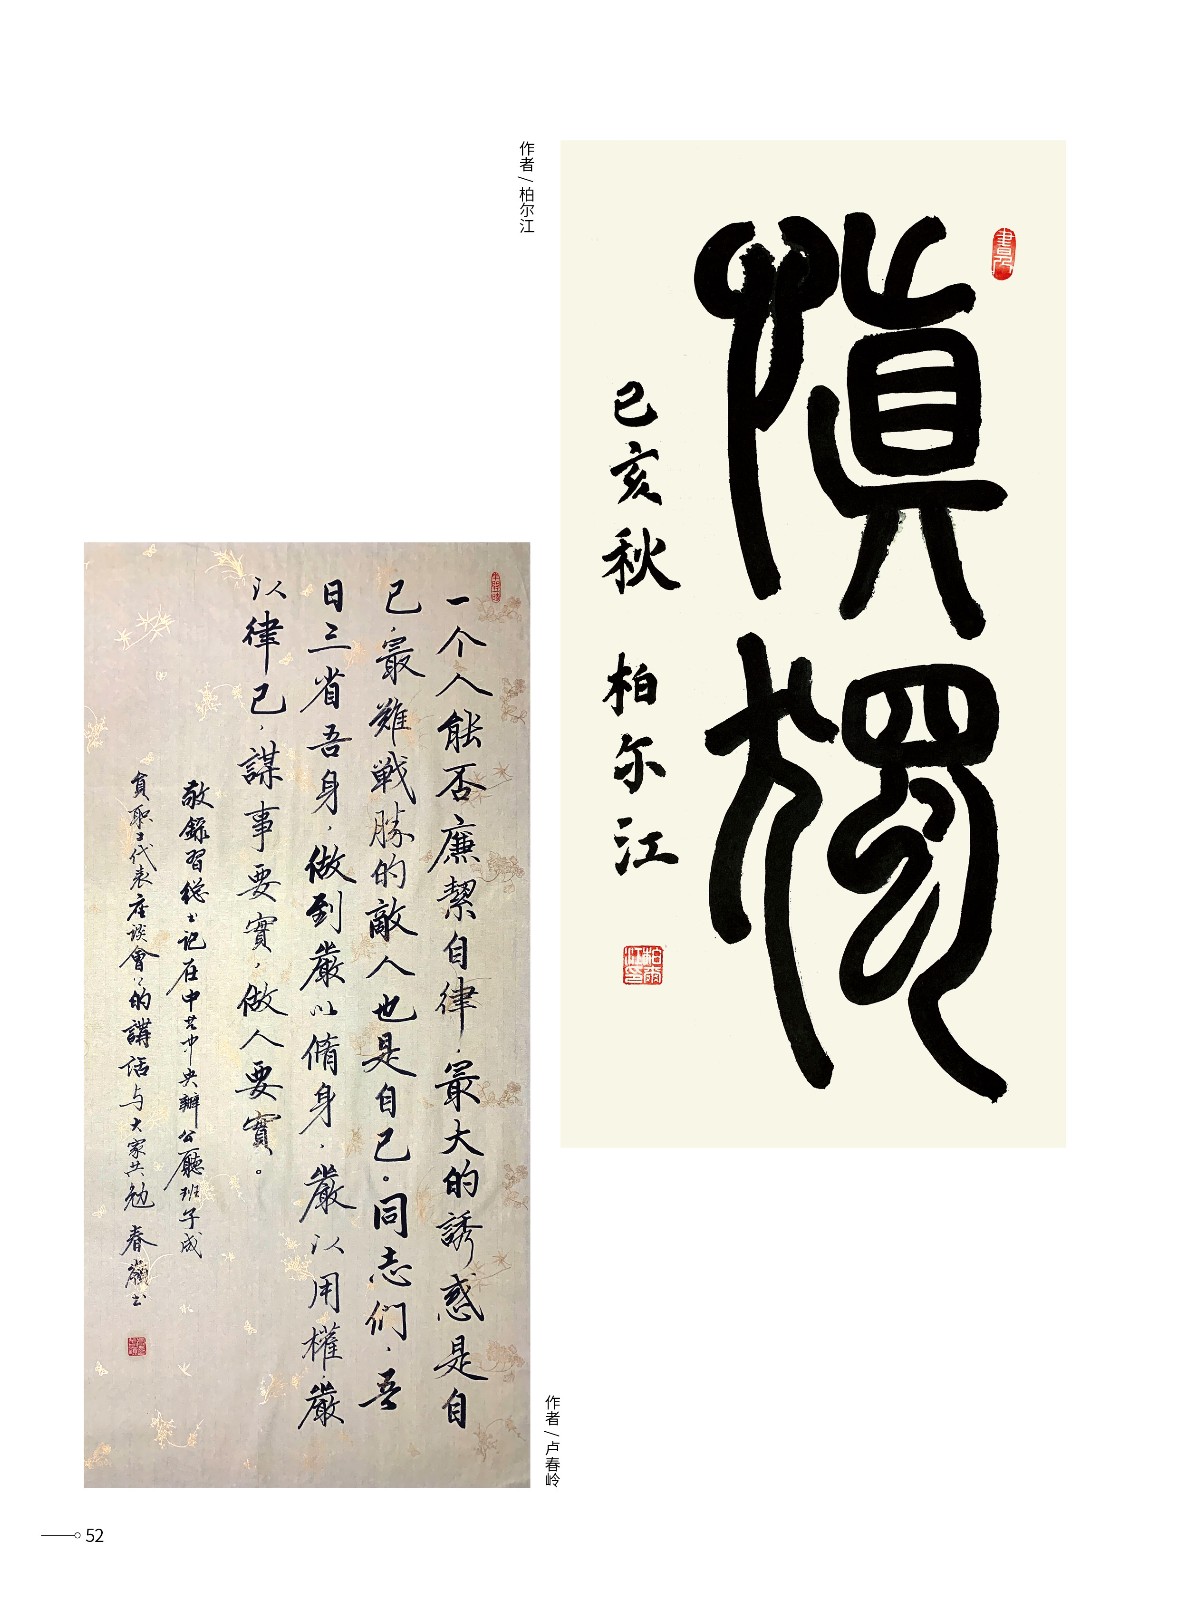 作者/柏尔江
愼獨
己亥秋 柏尔江
柏爾江印
一个人能否廉絜自律，最大的誘惑是自
己，最難戦勝的敵人也是自己。同志們，吾
日三省吾身，做到嚴以脩身，嚴以用權，嚴
以律己，謀事要實，做人要實。
敬錄習総书记在中共中央辦公廳班子成
員职工代表座谈會的講话与大家共勉 春嶺书
作者/卢春岭
52